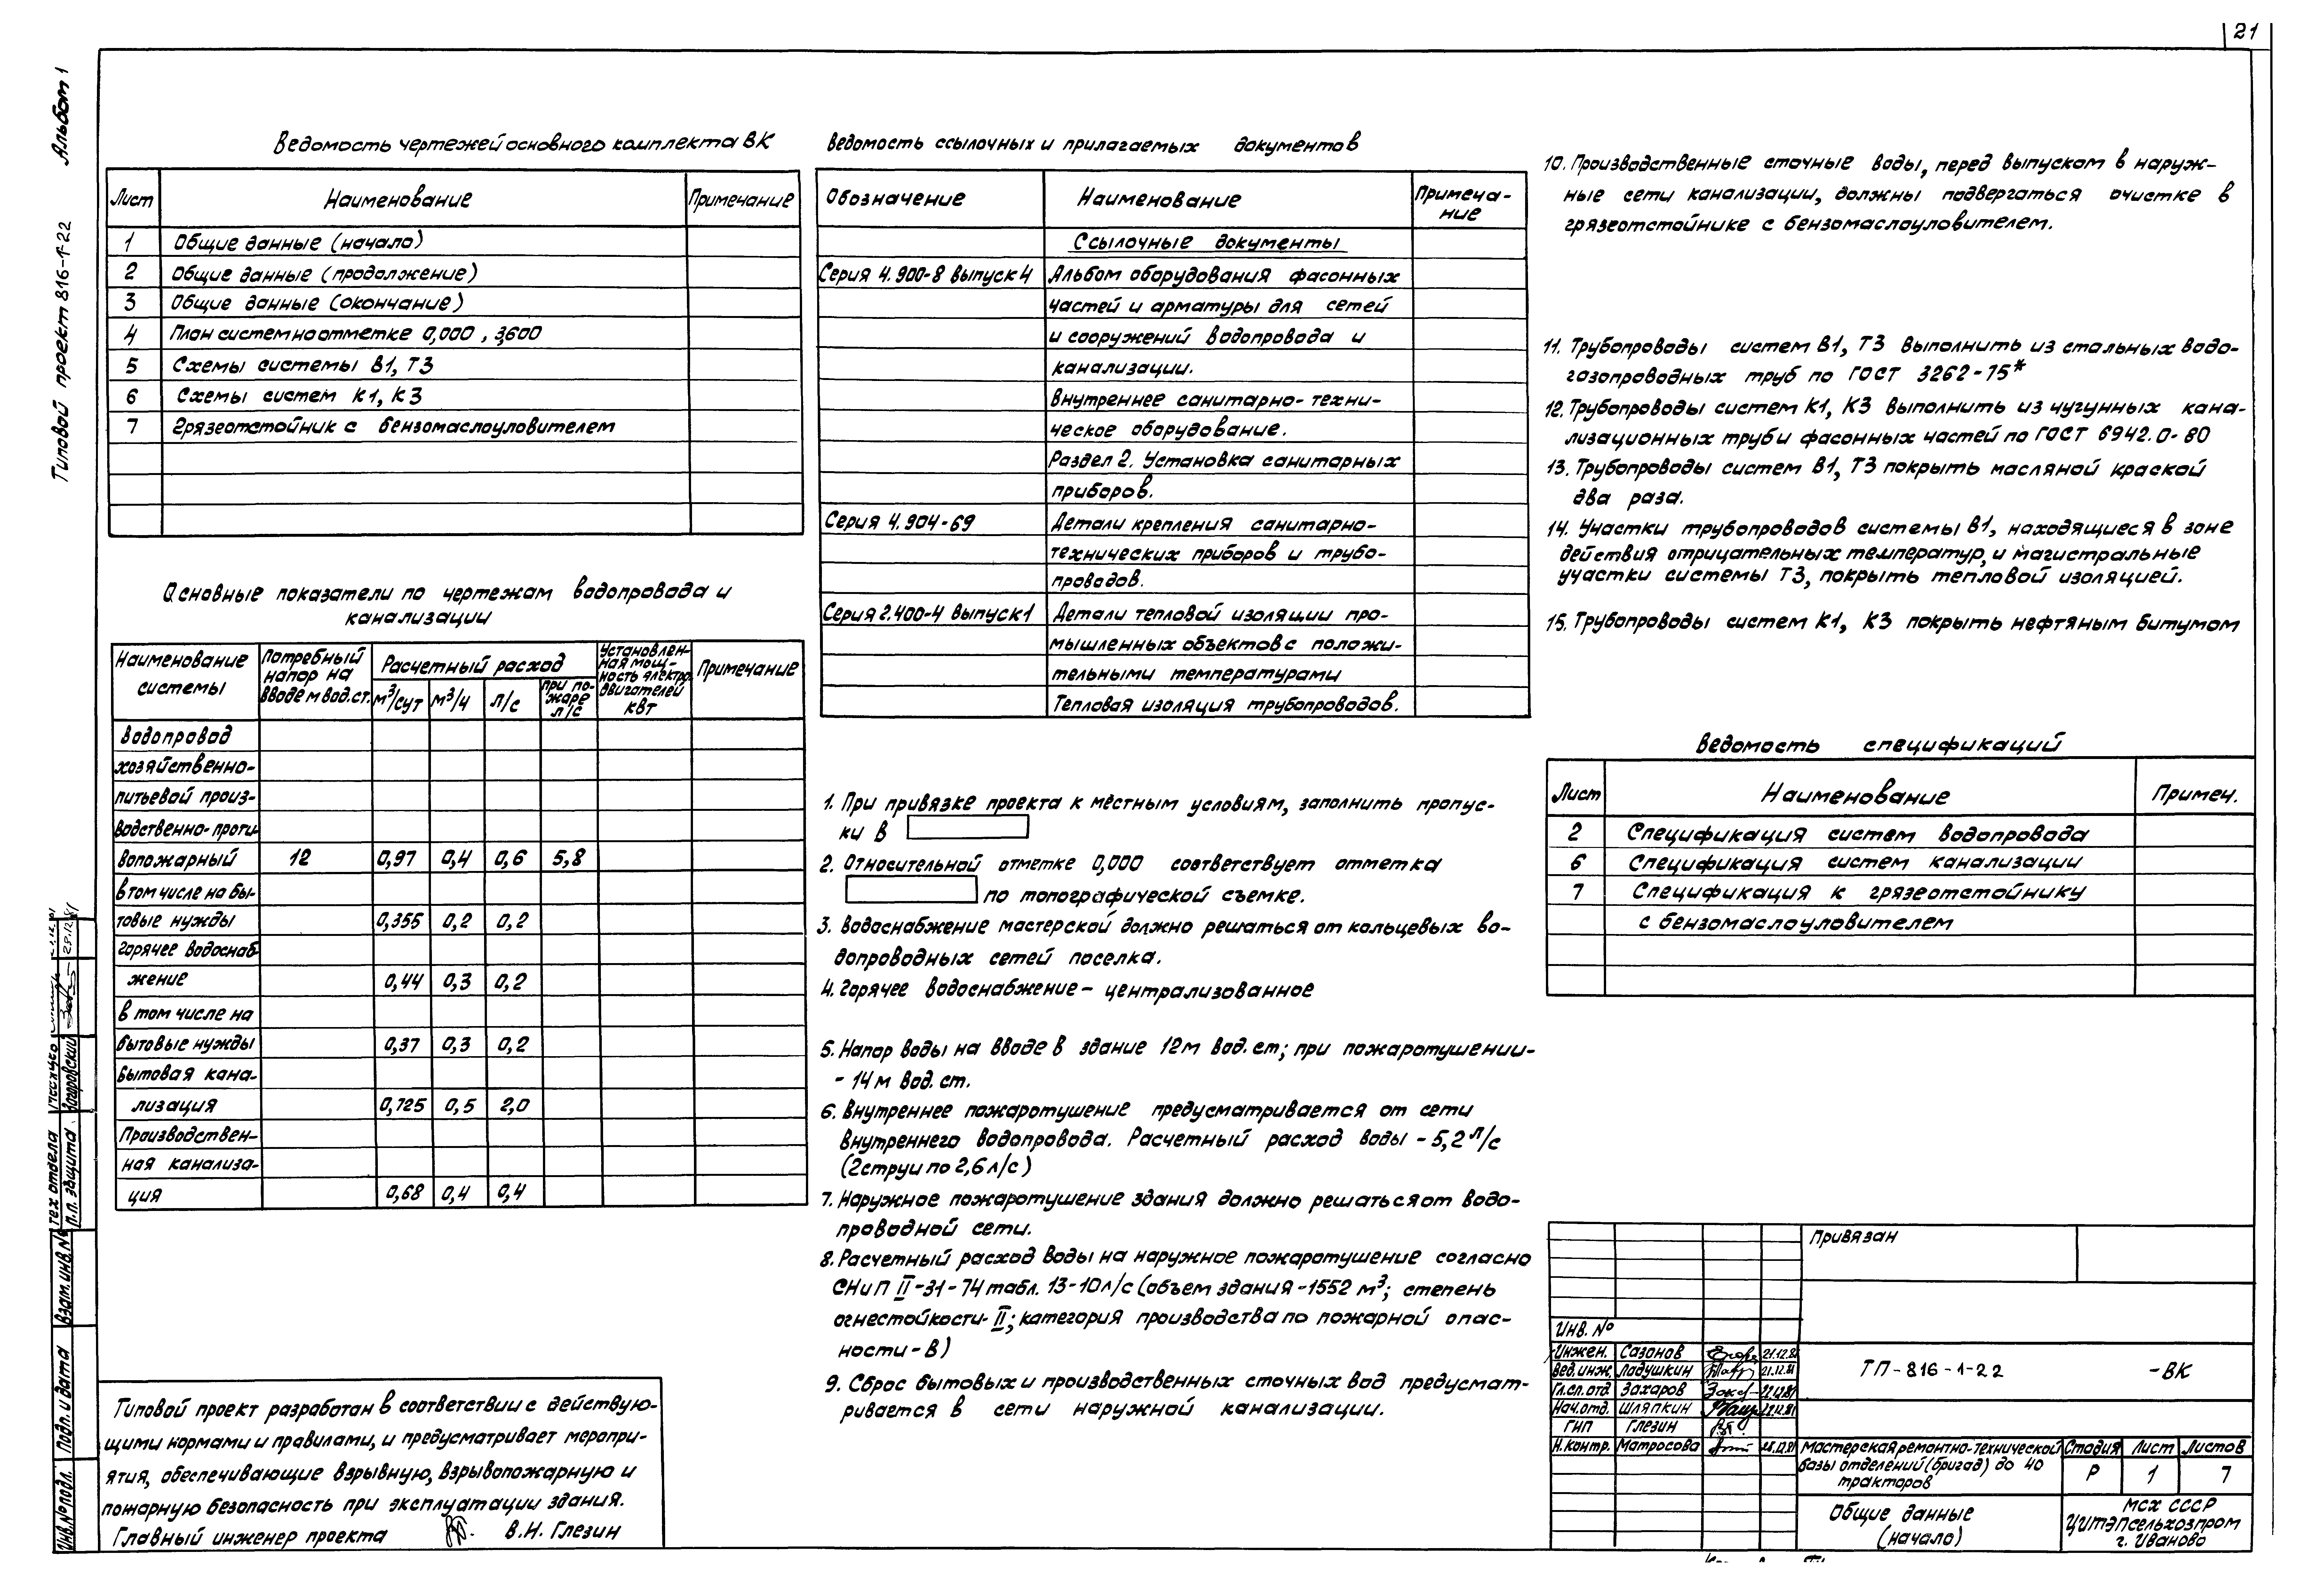 21
Альбом 1
Типовой проект 816-1-22
Ведомость чертежей основного комплекта ВК
Лист Наименование Примечание
1 Общие данные (начало)
2 Общие данные (продолжение)
3 Общие данные (окончание)
4 План систем на отметке 0,000, 3,600
5 Схемы системы В1, Т3
6 Схемы систем К1, К3
7 Грязеотстойник с бензомаслоуловителем
Основные показатели по чертежам водопровода и
канализации
Наименование системы
Потребный напор на вводе м вод.ст.
Расчетный расход
м³/сут м³/ч л/с при пожаре л/с
Установленная мощность электродвигателей квт
Примечание
Водопровод
хозяйственно-
питьевой произ-
водственно-проти-
вопожарный 12 0,97 0,4 0,6 5,8
в том числе на бы-
товые нужды 0,355 0,2 0,2
Горячее водоснаб
жение 0,44 0,3 0,2
в том числе на
бытовые нужды 0,37 0,3 0,2
Бытовая кана-
лизация 0,725 0,5 2,0
Производствен-
ная канализа-
ция 0,68 0,4 0,4
Типовой проект разработан в соответствии с действую-
щими нормами и правилами, и предусматривает меропри-
ятия, обеспечивающие взрывную, взрывопожарную и
пожарную безопасность при эксплуатации здания.
Главный инженер проекта В.Н. Глезин
Ведомость ссылочных и прилагаемых документов
Обозначение Наименование Примеча-
ние
Ссылочные документы
Серия 4.900-8 выпуск 4 Альбом оборудования фасонных
частей и арматуры для сетей
и сооружений водопровода и
канализации.
Внутреннее санитарно-техни-
ческое оборудование.
Раздел 2. Установка санитарных
приборов.
Серия 4.904-69 Детали крепления санитарно-
технических приборов и трубо-
проводов.
Серия 2.400-4 выпуск 1 Детали тепловой изоляции про-
мышленных объектов с положи-
тельными температурами
Тепловая изоляция трубопроводов.
1. При привязке проекта к местным условиям, заполнить пропус-
ки в
2. Относительной отметке 0,000 соответствует отметка
по топографической съемке.
3. Водоснабжение мастерской должно решаться от кольцевых во-
допроводных сетей поселка.
4. Горячее водоснабжение – централизованное
5. Напор воды на вводе в здание 12м вод.ст; при пожаротушении-
- 14м вод. ст.
6. Внутреннее пожаротушение предусматривается от сети
внутреннего водопровода. Расчетный расход воды - 5,2 л/с
(2 струи по 2,6 л/с)
7. Наружное пожаротушение здания должно решаться от водо-
проводной сети.
8. Расчетный расход воды на наружное пожаротушение согласно
СНиП II-31-74 табл. 13-10л/с (объем здания -1552 м³; степень
огнестойкости- II; категория производства по пожарной опас-
ности - В)
9. Сброс бытовых и производственных сточных вод предусмат-
ривается в сети наружной канализации.
10. Производственные сточные воды, перед выпуском в наруж-
ные сети канализации, должны подвергаться очистке в
грязеотстойнике с бензомаслоуловителем.
11. Трубопроводы систем В1, Т3 выполнить из стальных водо-
газопроводных труб по ГОСТ 3262-75*
12. Трубопроводы систем К1, К3 выполнить из чугунных кана-
лизационных труб и фасонных частей по ГОСТ 6942.0-80
13. Трубопроводы систем В1, Т3 покрыть масляной краской
два раза.
14. Участки трубопроводов системы В1, находящиеся в зоне
действия отрицательных температур, и магистральные
участки системы Т3, покрыть тепловой изоляцией.
15. Трубопроводы систем К1, К3 покрыть нефтяным битумом
Ведомость спецификаций
Лист Наименование Примеч.
2 Спецификация систем водопровода
6 Спецификация систем канализации
7 Спецификация к грязеотстойнику
с бензомаслоуловителем
Привязан
Инв. №
Инжен. Сазонов 21.12.81
Вед.инж. Ладушкин 21.12.81
Гл.сп.отд Захаров 22.12.81
Нач.отд. Шляпкин 28.12.81
ГИП Глезин
Н.контр. Матросова 28.12.81
ТП-816-1-22 -ВК
Мастерская ремонтно-технической
базы отделений (бригад) до 40
тракторов
Стадия Лист Листов
Р 1 7
Общие данные
(начало)
МСХ СССР
ЦИТЭПсельхозпром
г. Иваново
Тех отдела
П.П. защита
Взам.инв.№
Подп. и дата
Инв.№ подл.